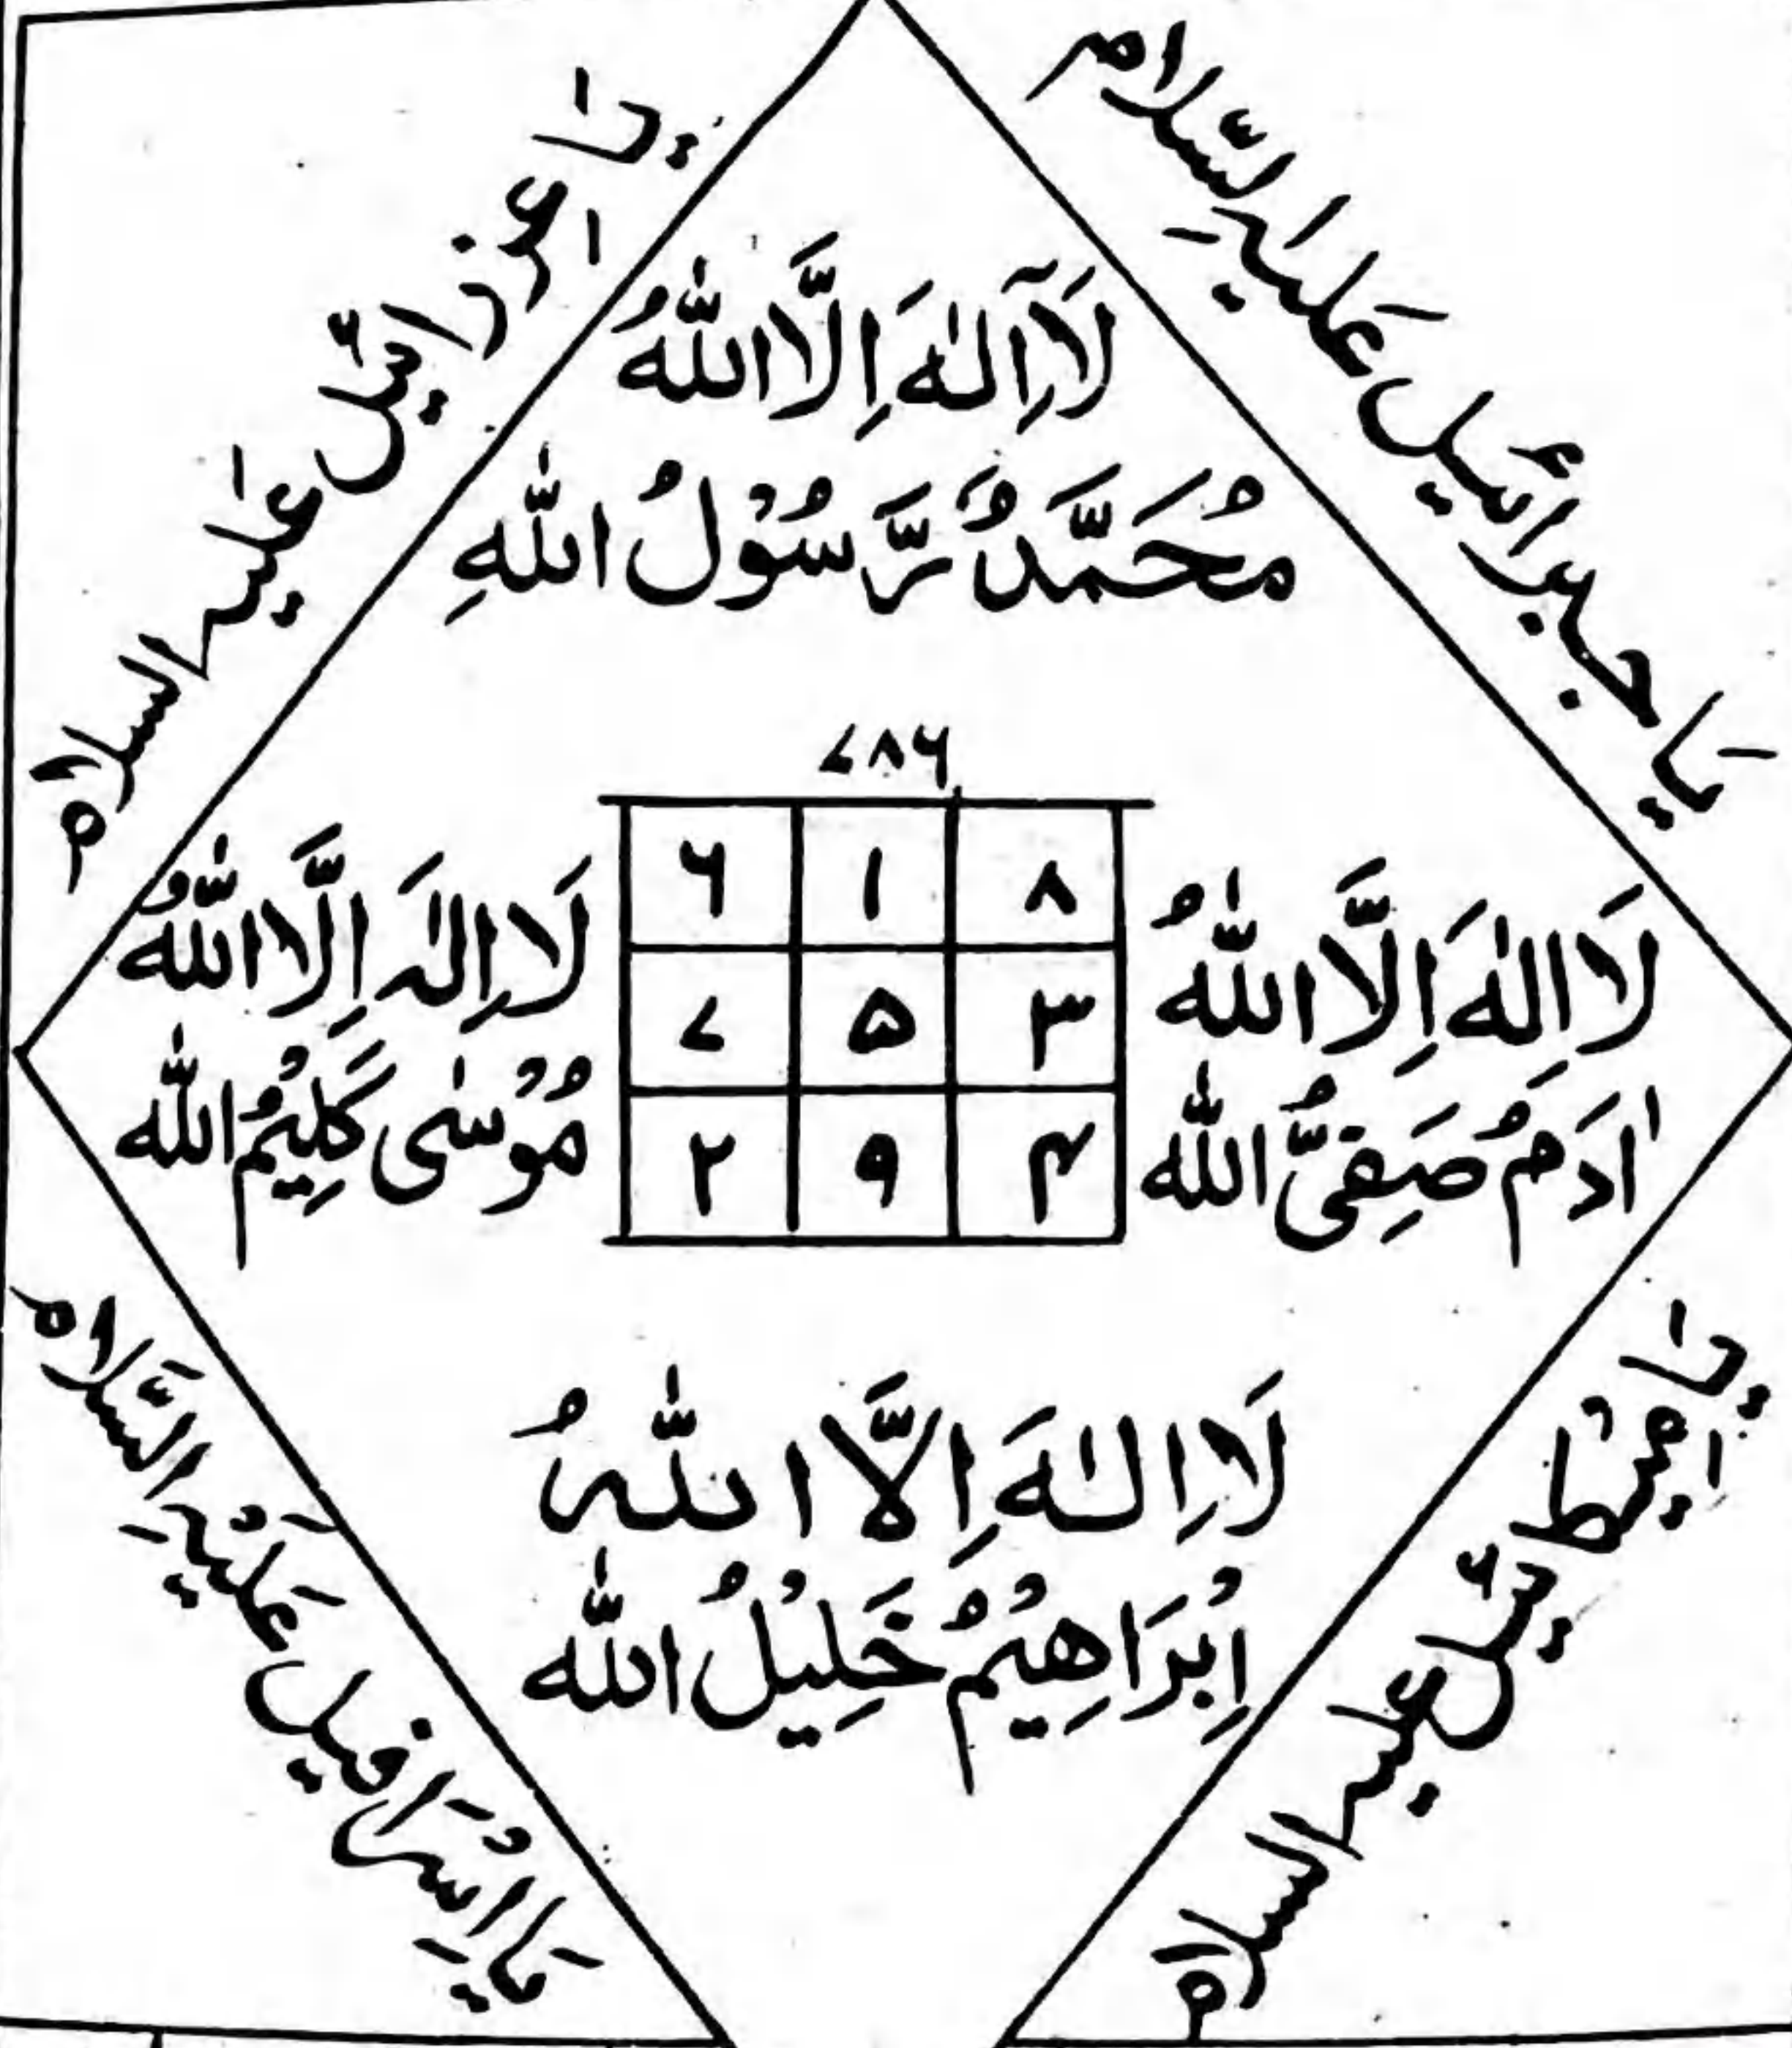 یا جبرائیل علیہ السّلام
یا عزرائیل علیہ السلام
لَآاِلٰهَ اِلَّا اللّٰهُ
مُحَمَّدٌ رَّسُوْلُ اللّٰهِ
۷۸۶
۸ ۱ ۶
۳ ۵ ۷
۴ ۹ ۲
لَا اِلٰهَ اِلَّا اللّٰهُ
اٰدَمُ صَفِیُّ اللّٰه
لَا اِلٰهَ اِلَّا اللّٰهُ
مُوْسٰی كَلِيْمُ اللّٰه
لَا اِلٰهَ اِلَّا اللّٰهُ
اِبْرَاهِيْمُ خَلِيْلُ اللّٰه
یَا اسْرَافِیل عَلَیْہِ السَّلَام
علیہ السلام